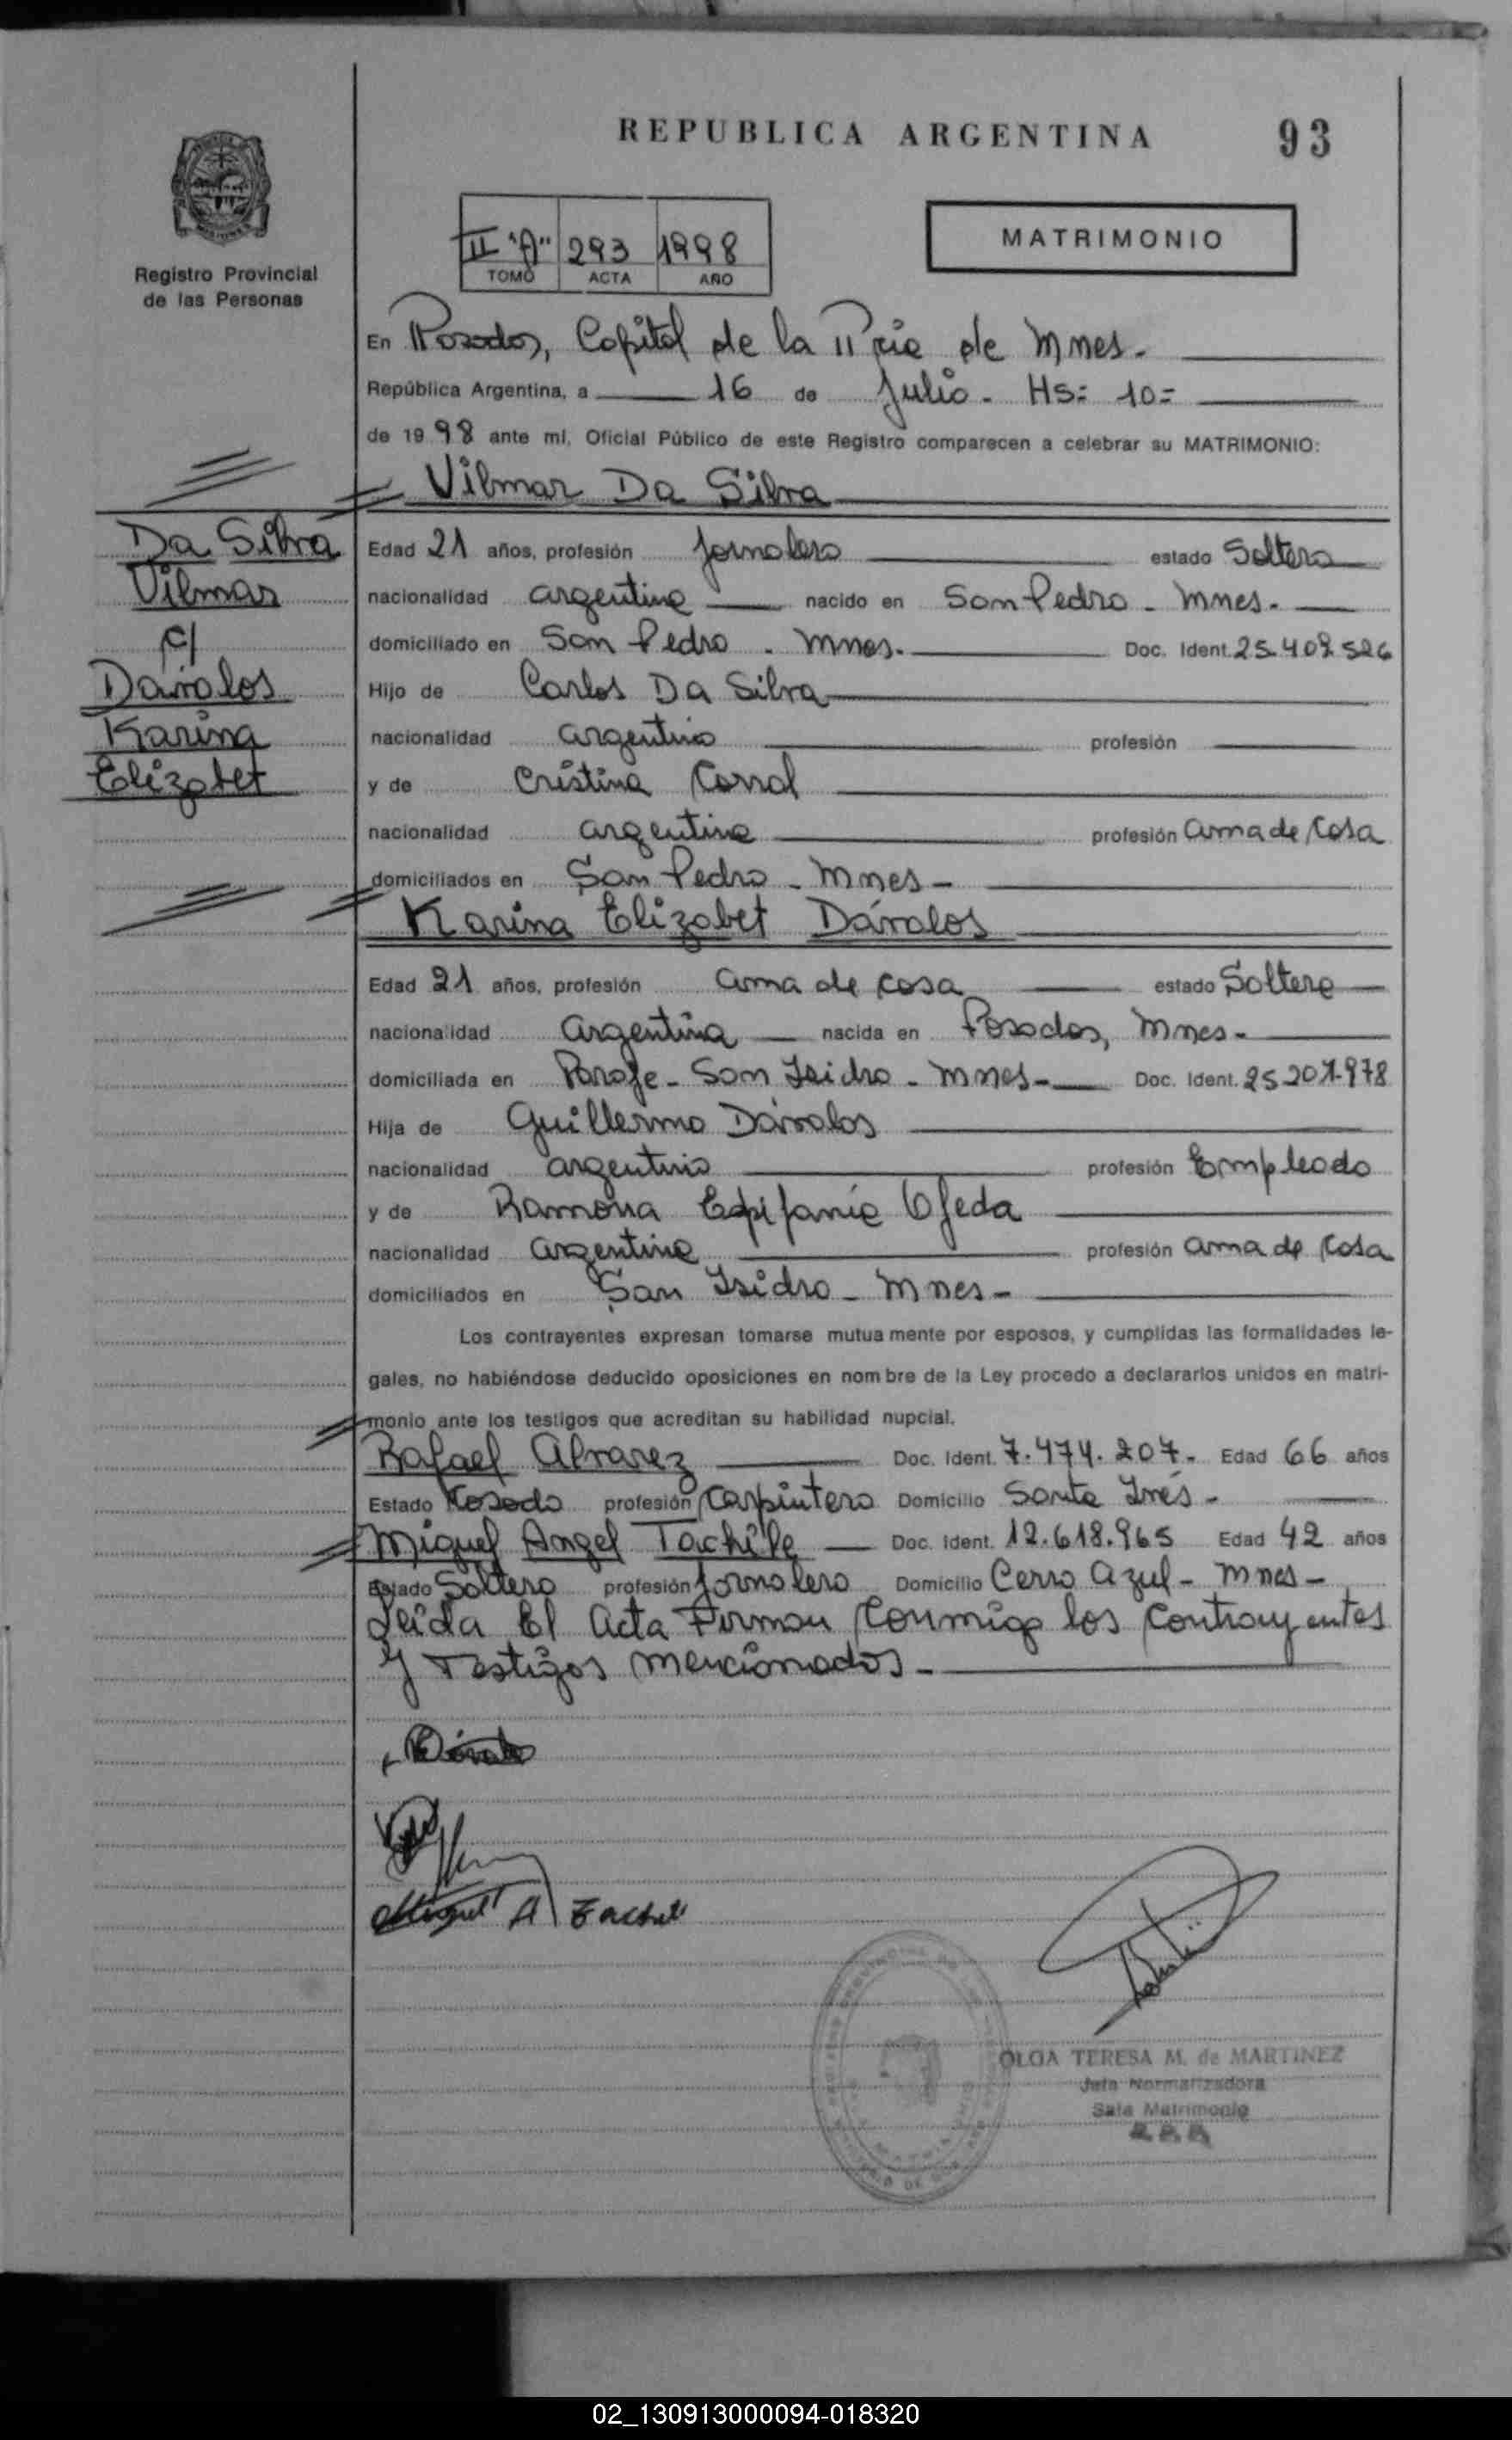 REPUBLICA ARGENTINA
93
Registro Provincial
de las Personas
II "A" 293 1998
TOMO ACTA AÑO
MATRIMONIO
En Posadas, Capital de la Pcia de Mnes.
República Argentina, a 16 de Julio - Hs: 10=
de 1998 ante mí, Oficial Público de este Registro comparecen a celebrar su MATRIMONIO:
Vilmar Da Silva
Da Silva
Vilmar
c/
Dávalos
Karina
Elizabet
Edad 21 años, profesión Jornalero estado Soltero
nacionalidad argentina nacido en San Pedro - Mnes.
domiciliado en San Pedro - Mnes. Doc. Ident. 25.409.526
Hijo de Carlos Da Silva
nacionalidad argentino profesión
y de Cristina Corral
nacionalidad argentina profesión ama de Casa
domiciliados en San Pedro - Mnes -
Karina Elizabet Dávalos
Edad 21 años, profesión ama de casa estado Soltera
nacionalidad argentina nacida en Posadas, Mnes -
domiciliada en Paraje - San Isidro - Mnes - Doc. Ident. 25.207.978
Hija de Guillermo Dávalos
nacionalidad argentino profesión Empleado
y de Ramona Epifania Ojeda
nacionalidad argentina profesión ama de Casa
domiciliados en San Isidro - Mnes -
Los contrayentes expresan tomarse mutuamente por esposos, y cumplidas las formalidades le-
gales, no habiéndose deducido oposiciones en nombre de la Ley procedo a declararlos unidos en matri-
monio ante los testigos que acreditan su habilidad nupcial.
Rafael Alvarez Doc. Ident. 7.474.207. Edad 66 años
Estado Casado profesión Carpintero Domicilio Santa Inés -
Miguel Angel Tachile Doc. Ident. 12.618.965 Edad 42 años
Estado Soltero profesión Jornalero Domicilio Cerro Azul - Mnes -
Leída El Acta Firman Conmigo los Contrayentes
y Testigos mencionados -
Miguel A
OLGA TERESA M. de MARTINEZ
Jefa Normatizadora
Sala Matrimonio
02_130913000094-018320